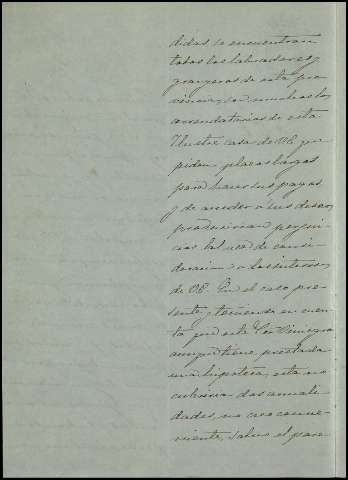 didas se encuentran
todos los labradores y
granjeros de esta pro
vincia, son muchos los
arrendatarios de esta
Ilustre casa de VE que
piden plazos largos
para hacer sus pagos
y de acceder a sus deseos
producirian perjui
cios tal vez de consi
deracion a los intereses
de VE. En el caso pre
sente, y teniendo en cuen
ta que este Sor
aunque tiene prestada
una hipoteca, esta no
cubriria dos anuali
dades, no creo conve
niente, salvo el pare